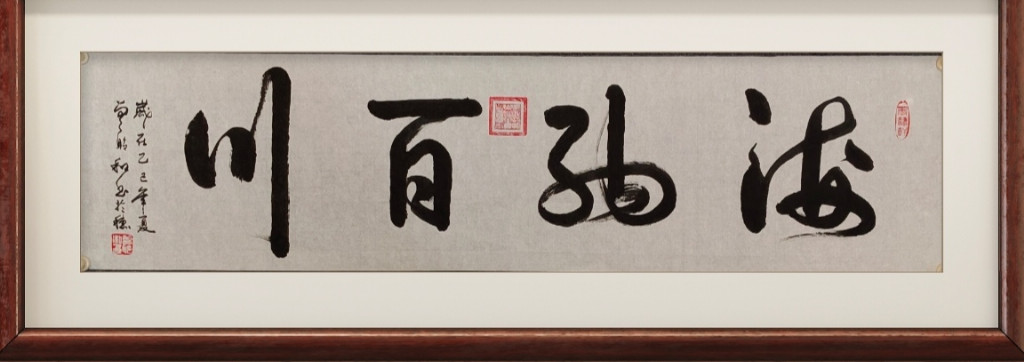 海纳百川
歲在乙巳年夏